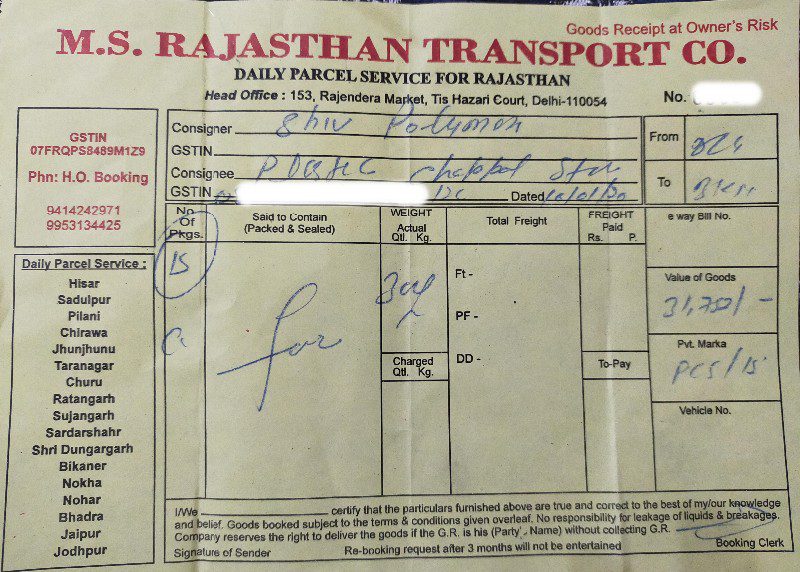 Goods Receipt at Owner's Risk
M.S. RAJASTHAN TRANSPORT CO.
DAILY PARCEL SERVICE FOR RAJASTHAN
Head Office : 153, Rajendera Market, Tis Hazari Court, Delhi-110054
No.
GSTIN
07FRQPS8489M1Z9
Phn: H.O. Booking
9414242971
9953134425
Consigner Shiv
GSTIN
Consignee Plastic Chappal
GSTIN Dated
From
To
No. Of Pkgs.
15
Said to Contain
(Packed & Sealed)
WEIGHT
Actual
Qtl. Kg.
Charged
Qtl. Kg.
Total Freight
Ft -
PF -
DD -
FREIGHT
Paid
Rs. P.
To-Pay
e way Bill No.
Value of Goods
31,750/-
Pvt. Marka
PCS/15
Vehicle No.
Daily Parcel Service :
Hisar
Sadulpur
Pilani
Chirawa
Jhunjhunu
Taranagar
Churu
Ratangarh
Sujangarh
Sardarshahr
Shri Dungargarh
Bikaner
Nokha
Nohar
Bhadra
Jaipur
Jodhpur
I/We certify that the particulars furnished above are true and correct to the best of my/our knowledge
and belief. Goods booked subject to the terms & conditions given overleaf. No responsibility for leakage of liquids & breakages.
Company reserves the right to deliver the goods if the G.R. is his (Party'. Name) without collecting G.R.
Signature of Sender
Re-booking request after 3 months will not be entertained
Booking Clerk